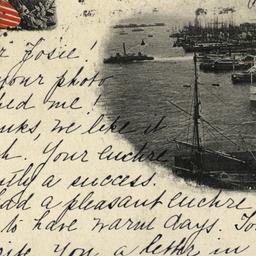 Josie!
your photo
me!
we like it
Your euchre
a success.
had a pleasant euchre
to have warm days.
You a letter in